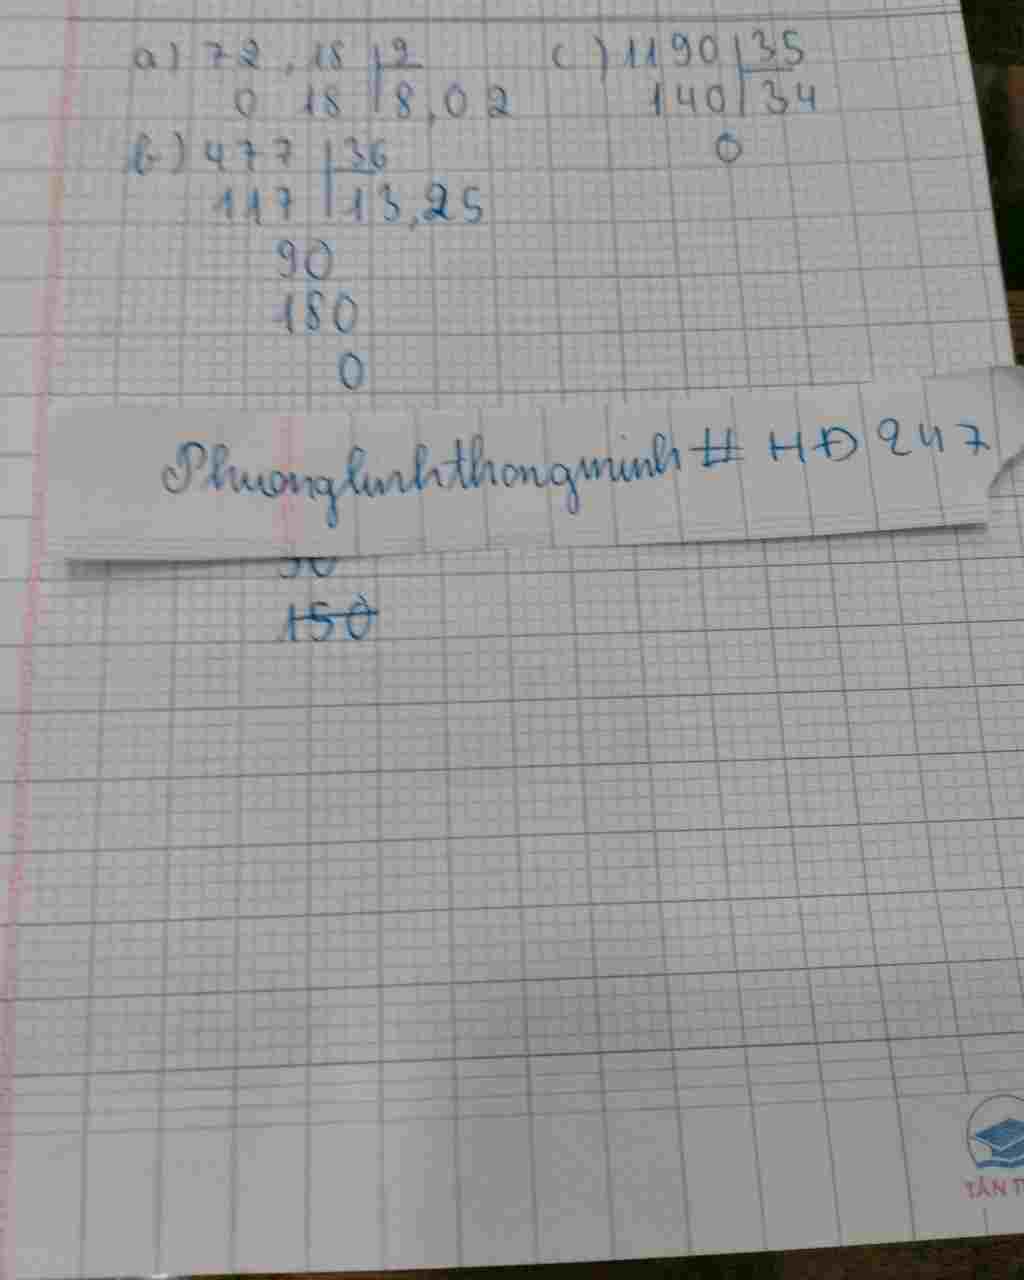 a) 72,18 | 9
0 18 | 8,02
b) 477 | 36
117 | 13,25
90
180
0
c) 1190 | 35
140 | 34
0
Phuonglinhthongminh # HĐ 247
150
TÂN T